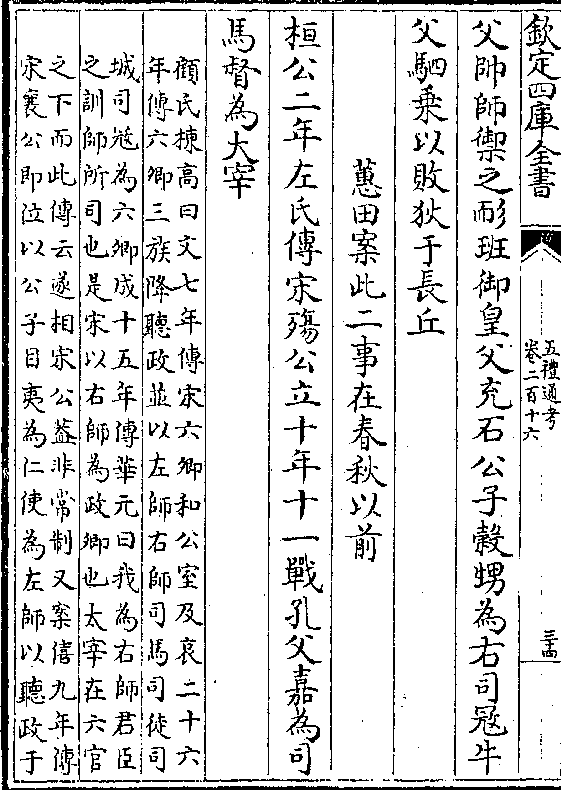 欽定四庫全書
五禮通考
卷二百十六
三十四
父帥師禦之耏班御皇父充石公子穀甥為右司冦牛
父駟乗以敗狄于長丘
蕙田案此二事在春秋以前
桓公二年左氏傳宋殤公立十年十一戰孔父嘉為司
馬督為大宰
顧氏棟高曰文七年傳宋六卿和公室及哀二十六
年傳六卿三族降聽政並以左師右師司馬司徒司
城司冦為六卿成十五年傳華元曰我為右師君臣
之訓師所司也是宋以右師為政卿也太宰在六官
之下而此傳云遂相宋公葢非常制又案僖九年傳
宋襄公即位以公子目夷為仁使為左師以聽政于